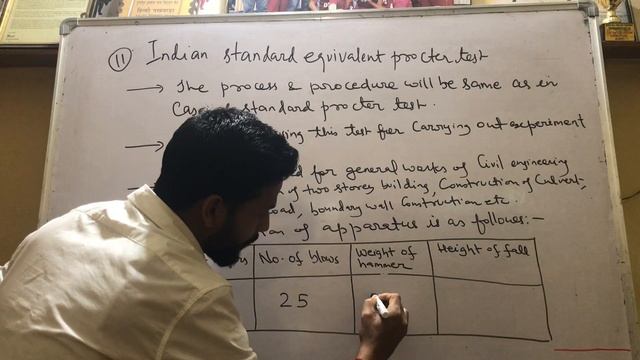 (11) Indian standard equivalent procter test
→ The process & procedure will be same as in
standard procter test.
this test for carrying out experiment
for general works of Civil engineering
of two stores building, Construction of Culvert,
boundary wall Construction etc.
of apparatus is as follows:-
No. of blows
Weight of hammer
Height of fall
25